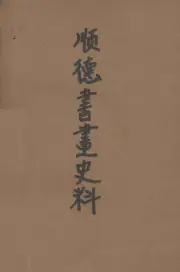 顺德書畫史料